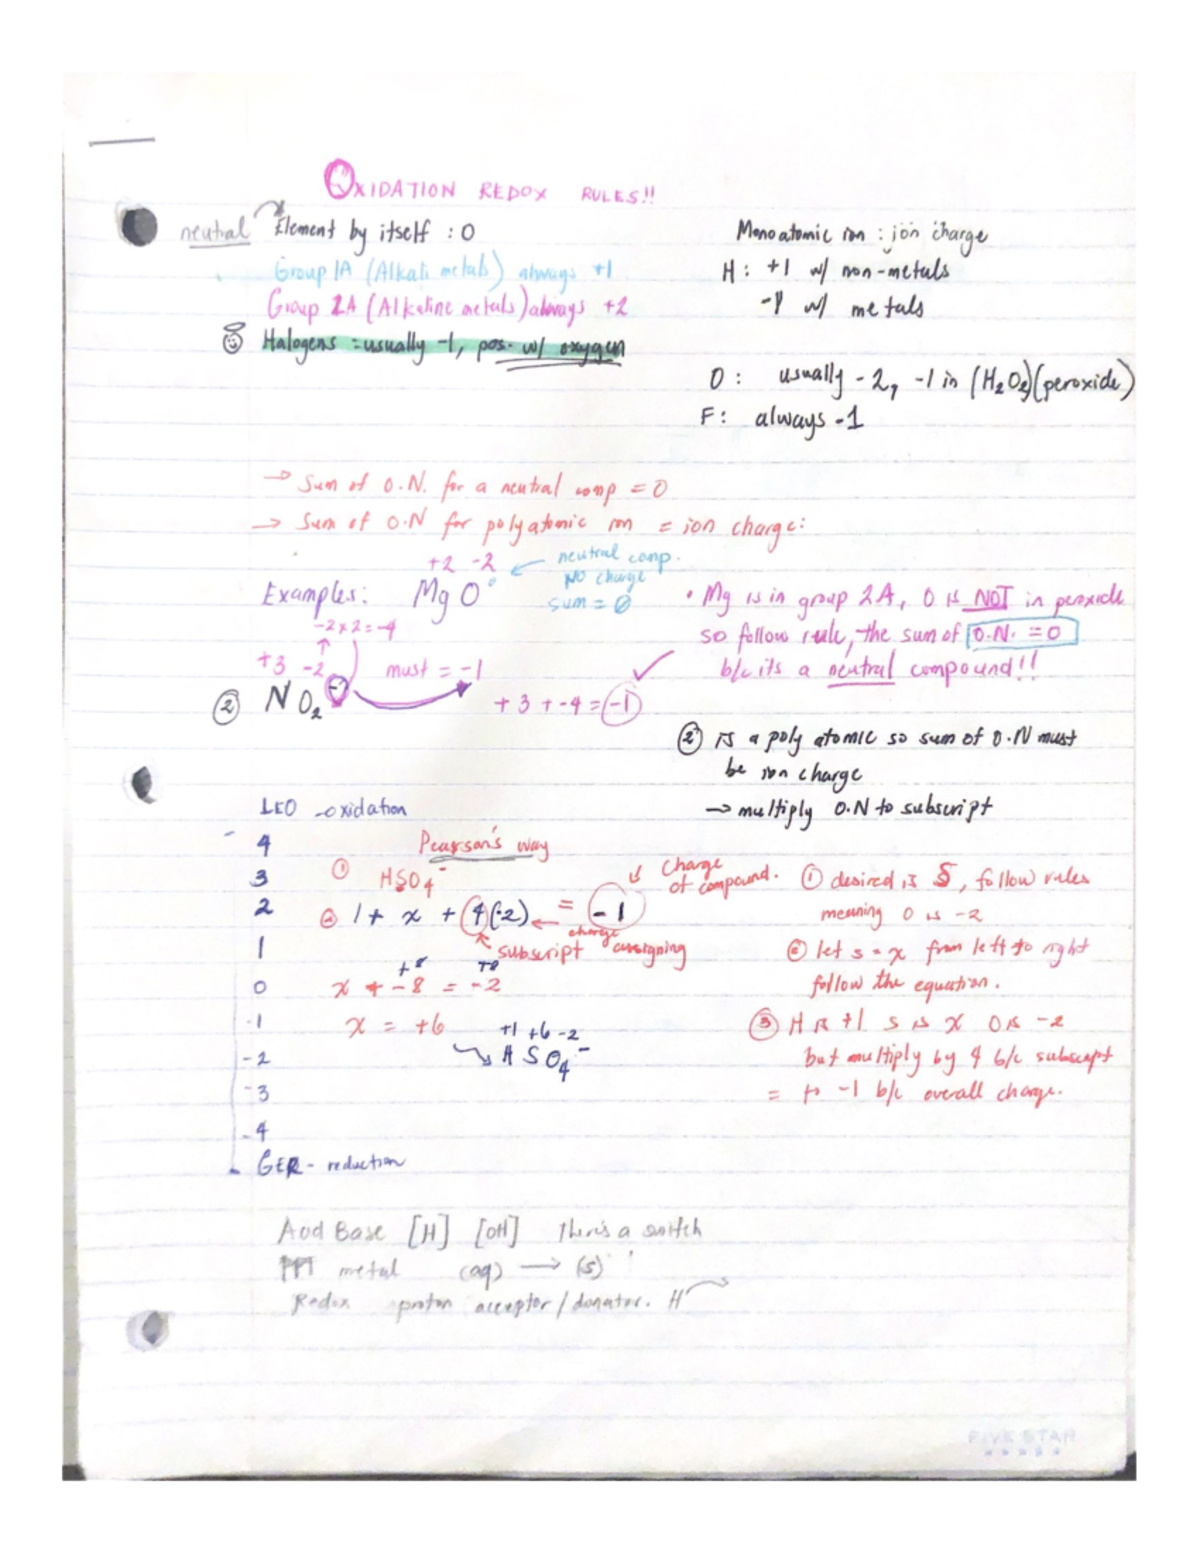 OXIDATION REDOX RULES!!
neutral Element by itself : 0
Group 1A (Alkali metals) always +1
Group 2A (Alkaline metals) always +2
Halogens : usually -1, pos. w/ oxygen
Monoatomic ion : ion charge
H : +1 w/ non-metals
-1 w/ metals
O : usually -2, -1 in (H2O2) (peroxide)
F : always -1
→ Sum of O.N. for a neutral comp = 0
→ Sum of O.N for polyatomic ion = ion charge:
+2 -2
Examples: MgO°
← neutral comp.
NO charge
sum = 0
• Mg is in group 2A, O is NOT in peroxide
so follow rule, the sum of O.N. = 0
b/c its a neutral compound!!
-2x2=-4
+3 -2
must = -1
② NO2-
+3 + -4 = -1
② is a poly atomic so sum of O.N must
be ion charge
→ multiply O.N to subscript
LEO - oxidation
4
3
2
1
0
-1
-2
-3
-4
GER - reduction
Pearson's way
① HSO4-
charge
of compound.
② 1 + x + 4(-2) = -1
subscript
charge assigning
+8 +8
x + -8 = -2
x = +6
+1 +6 -2
HSO4-
① desired is S, follow rules
meaning O is -2
② let s = x from left to right
follow the equation.
③ H is +1 S is x O is -2
but multiply by 4 b/c subscript
= to -1 b/c overall charge.
Acid Base [H] [OH] There's a switch
PPT metal (aq) → (s)
Redox proton acceptor/donator. H
FIVE STAR